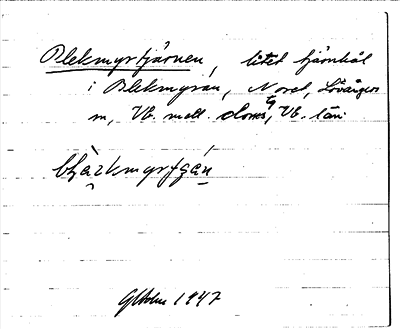 Blekmyrtjärnen, litet tjärnhål
i Blekmyran, Norol, Lövångers
sn, Vb. mell. doms, Vb. län
bḷàrkmyrṣjạ́n
GHolm 1947